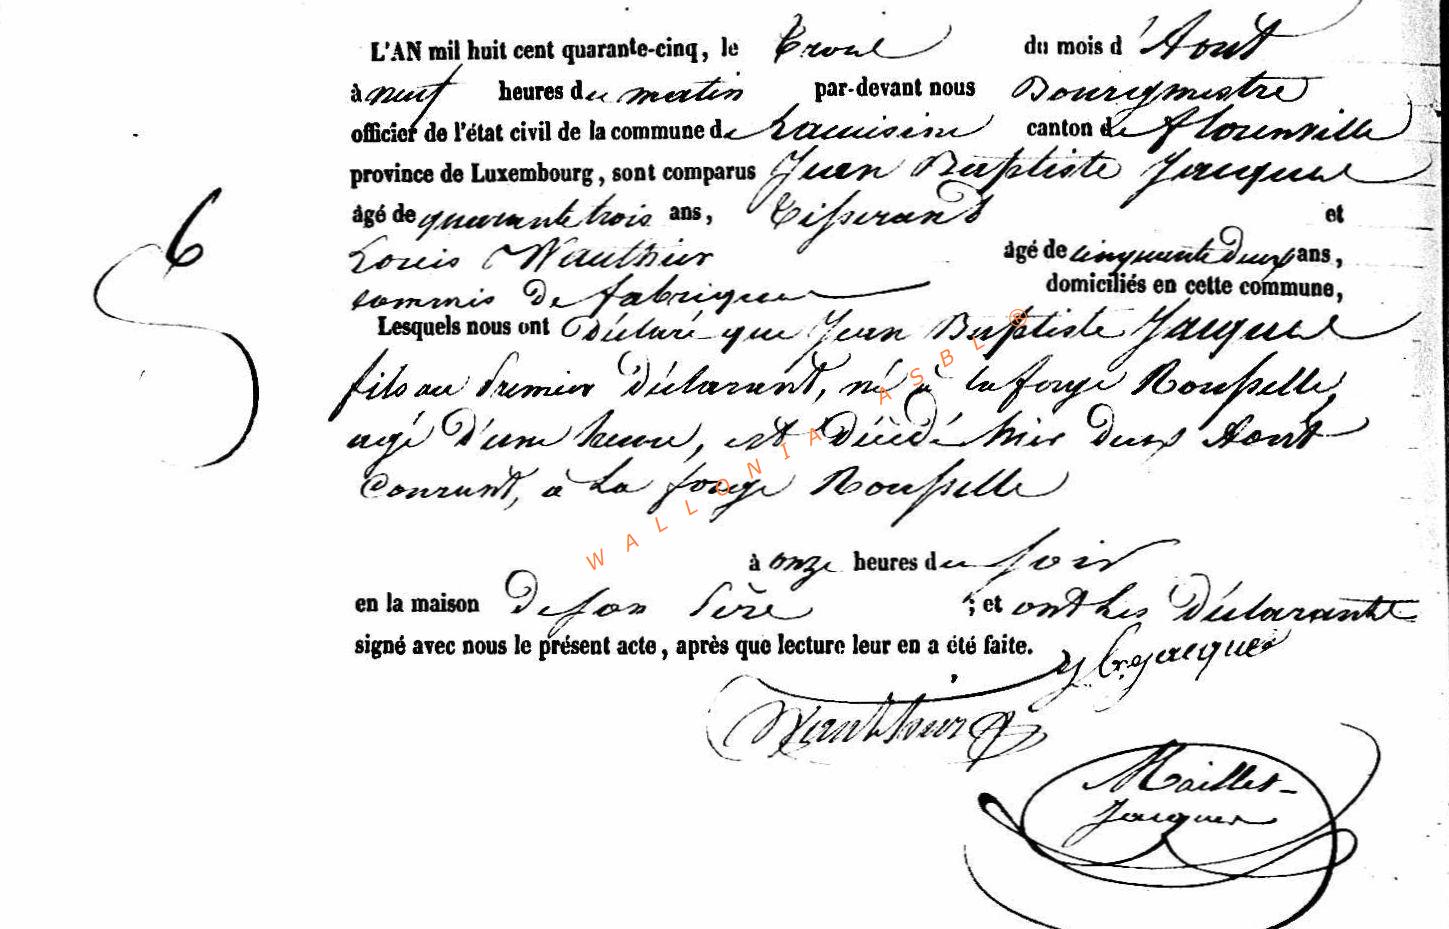 L'AN mil huit cent quarante-cinq, le trois du mois d'Aout
à neuf heures du matin par-devant nous Bourgmestre
officier de l'état civil de la commune de Lacuisine canton de florenville
province de Luxembourg, sont comparus Jean Baptiste Jacques
âgé de quarante trois ans, Tisserand et
6
Louis Wauthier âgé de cinquante deux ans,
commis de fabrique domiciliés en cette commune,
Lesquels nous ont Déclaré que Jean Baptiste Jacques
fils au Premier Déclarant, né à la forge Rousselle,
agé d'une heure, est Décédé hier deux Aout
Courant, à La forge Rousselle
à onze heures du soir
en la maison de son Père ; et ont Les Déclarants
signé avec nous le présent acte, après que lecture leur en a été faite.
Jacques
Wauthier
Maillet-
Jacques
WALLONIA ASBL ®